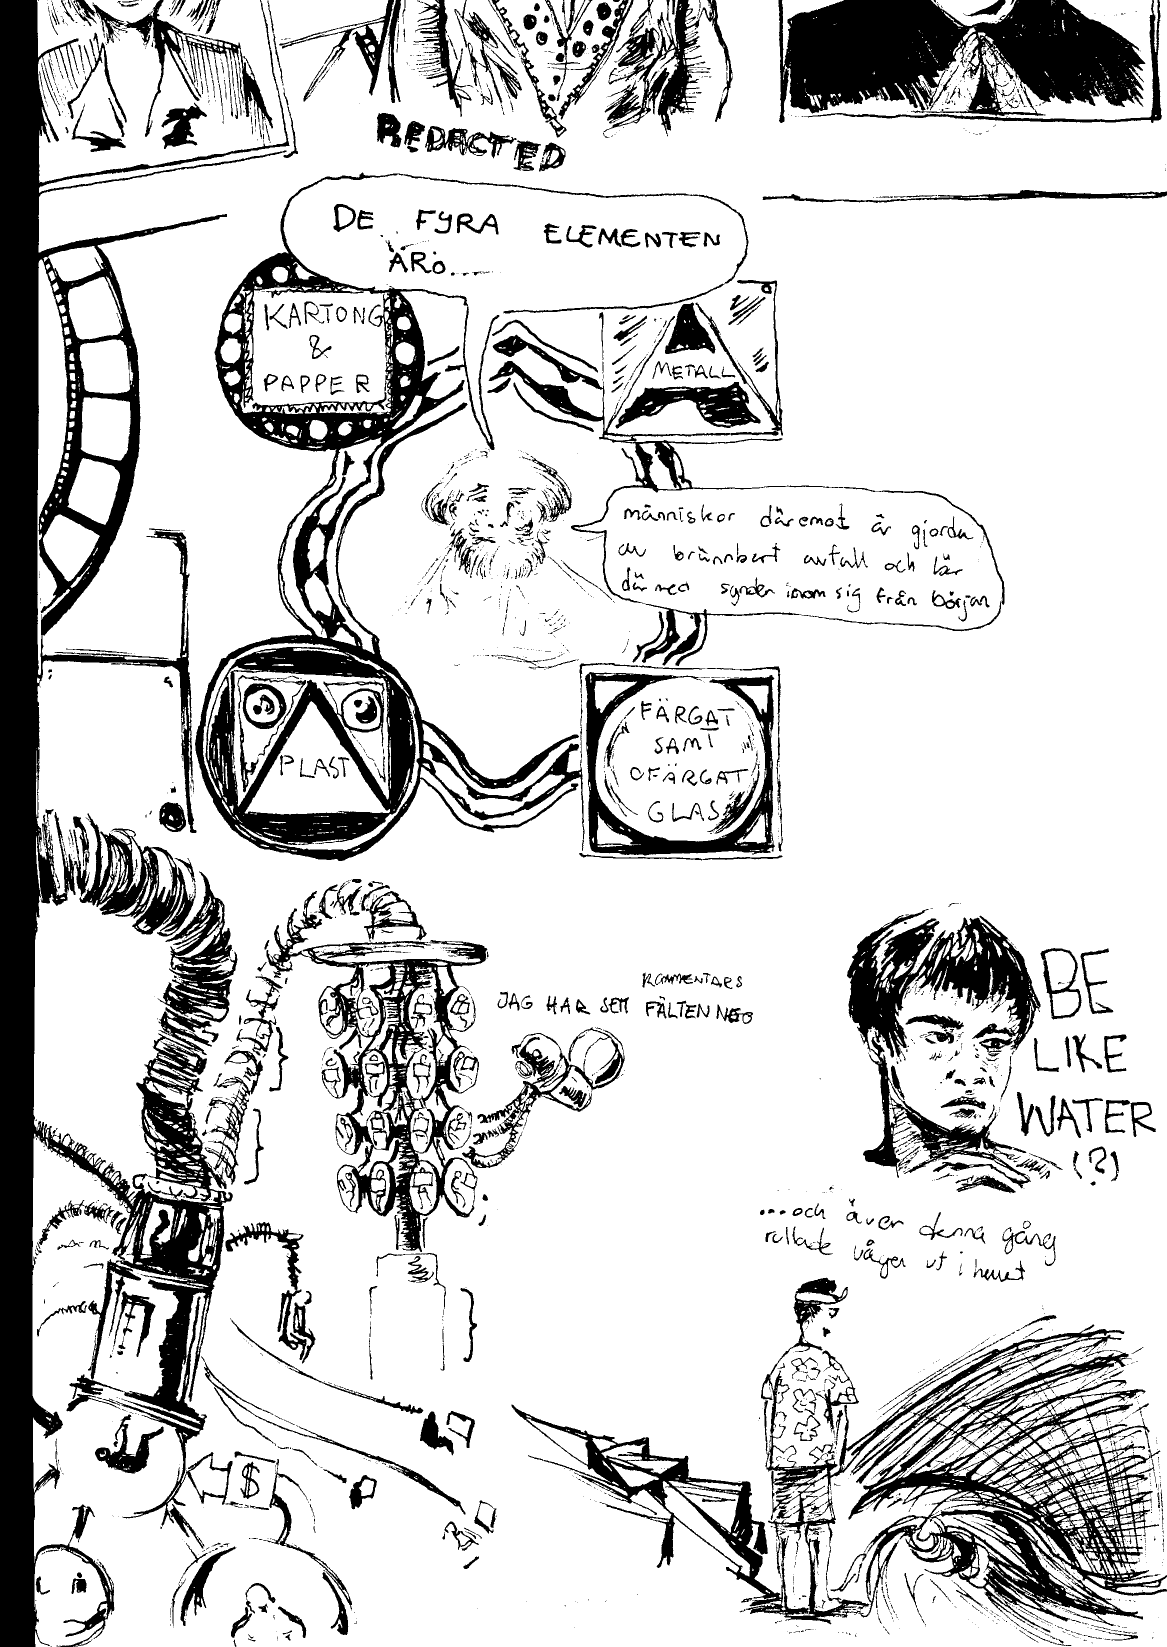 REDACTED
DE FYRA ELEMENTEN
ÄRO....
KARTONG
&
PAPPER
METALL
människor däremot är gjorda
av brännbart avfall och bär
därmed synden inom sig från början
PLAST
FÄRGAT
SAMT
OFÄRGAT
GLAS
KOMMENTARS
JAG HAR SETT FÄLTEN
BE
LIKE
WATER
(?)
...och även denna gång
rullade vågen ut i havet
$